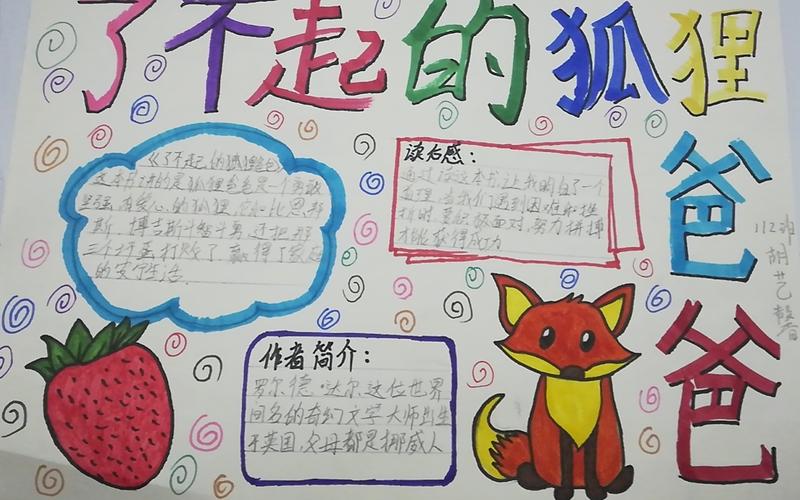 了不起的狐狸
爸
爸
《了不起的狐狸爸爸》
这本书讲的是狐狸爸爸是一个勇敢
坚强、有爱心的狐狸,它和比恩、邦
斯、博吉斯斗智斗勇,还把那
三个坏蛋打败了,赢得了家庭
的安宁生活。
读后感:
通过读这本书,让我明白了一个
道理,当我们遇到困难和挫
折时,要积极面对,努力拼搏
才能获得成功
作者简介:
罗尔德·达尔这位世界
闻名的奇幻文字大师出生
于英国,父母都是挪威人
112班
胡艺馨